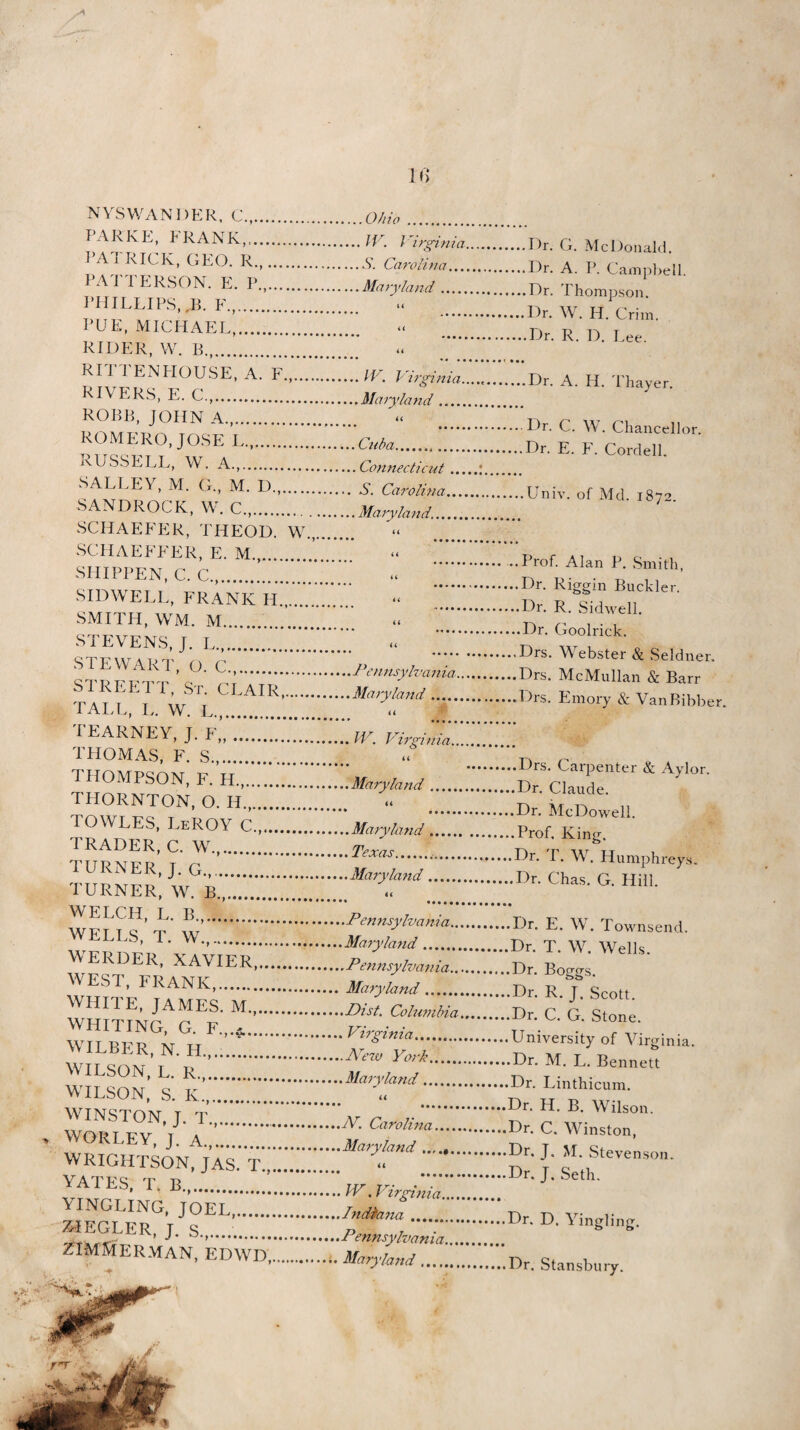 16
NYSWANDER, C.,..........Ohio..........
PARKE, FRANK,..........W. Virginia..........Dr. G. McDonald.
PATRICK, GEO. R.,..........S. Carolina..........Dr. A. P. Campbell.
PATTERSON. E. P.,..........Maryland..........Dr. Thompson.
PHILLIPS, B. F.,.......... “ ..........Dr. W. H. Crim.
PUE, MICHAEL,.......... “ ..........Dr. R. D. Lee.
RIDER, W. B.,.......... “ ..........
RITTENHOUSE, A. F.,..........W. Virginia..........Dr. A. H. Thayer.
RIVERS, E. C.,..........Maryland..........
ROBB, JOHN A.,.......... “ ..........Dr. C. W. Chancellor.
ROMERO, JOSE L.,..........Cuba..........Dr. E. F. Cordell.
RUSSELL, W. A.,..........Connecticut..........
SALLEY, M. G., M. D.,..........S. Carolina..........Univ. of Md. 1872.
SANDROCK, W. C.,..........Maryland..........
SCHAEFER, THEOD. W.,.......... “ ..........
SCHAEFFER, E. M.,.......... “ ..........Prof. Alan P. Smith,
SHIPPEN, C. C.,.......... “ ..........Dr. Riggin Buckler.
SIDWELL, FRANK H.,.......... “ ..........Dr. R. Sidwell.
SMITH, WM. M.......... “ ..........Dr. Goolrick.
STEVENS, J. L.,.......... “ ..........Drs. Webster & Seldner.
STEWART, O. C.,..........Pennsylvania..........Drs. McMullan & Barr
STREETT, ST. CLAIR,..........Maryland..........Drs. Emory & VanBibber.
TALL, L. W. L.,.......... “ ..........
TEARNEY, J. F,,..........W. Virginia..........
THOMAS, F. S.,.......... “ ..........Drs. Carpenter & Aylor.
THOMPSON, F. H.,..........Maryland..........Dr. Claude.
THORNTON, O. H.,.......... “ ..........Dr. McDowell.
TOWLES, LEROY C.,..........Maryland..........Prof. King.
TRADER, C. W.,..........Texas..........Dr. T. W. Humphreys.
TURNER, J. G.,..........Maryland..........Dr. Chas. G. Hill.
TURNER, W. B.,.......... “ ..........
WELCH, L. B.,..........Pennsylvania..........Dr. E. W. Townsend.
WELLS, T. W.,..........Maryland..........Dr. T. W. Wells.
WERDER, XAVIER,..........Pennsylvania..........Dr. Boggs.
WEST, FRANK,..........Maryland..........Dr. R. J. Scott.
WHITE, JAMES. M.,..........Dist. Columbia..........Dr. C. G. Stone.
WHITING, G. F.,..........Virginia..........University of Virginia.
WILBER, N. H.,..........New York..........Dr. M. L. Bennett
WILSON, L. R.,..........Maryland..........Dr. Linthicum.
WILSON, S. K.,.......... “ ..........Dr. H. B. Wilson.
WINSTON, J. T.,..........N. Carolina..........Dr. C. Winston,
WORLEY, J. A.,..........Maryland..........Dr. J. M. Stevenson.
WRIGHTSON, JAS. T.,.......... “ ..........Dr. J. Seth.
YATES, T. B.,..........W. Virginia..........
YINGLING, JOEL,..........Indiana..........Dr. D. Yingling.
ZIEGLER, J. S.,..........Pennsylvania..........
ZIMMERMAN, EDWD,..........Maryland..........Dr. Stansbury.